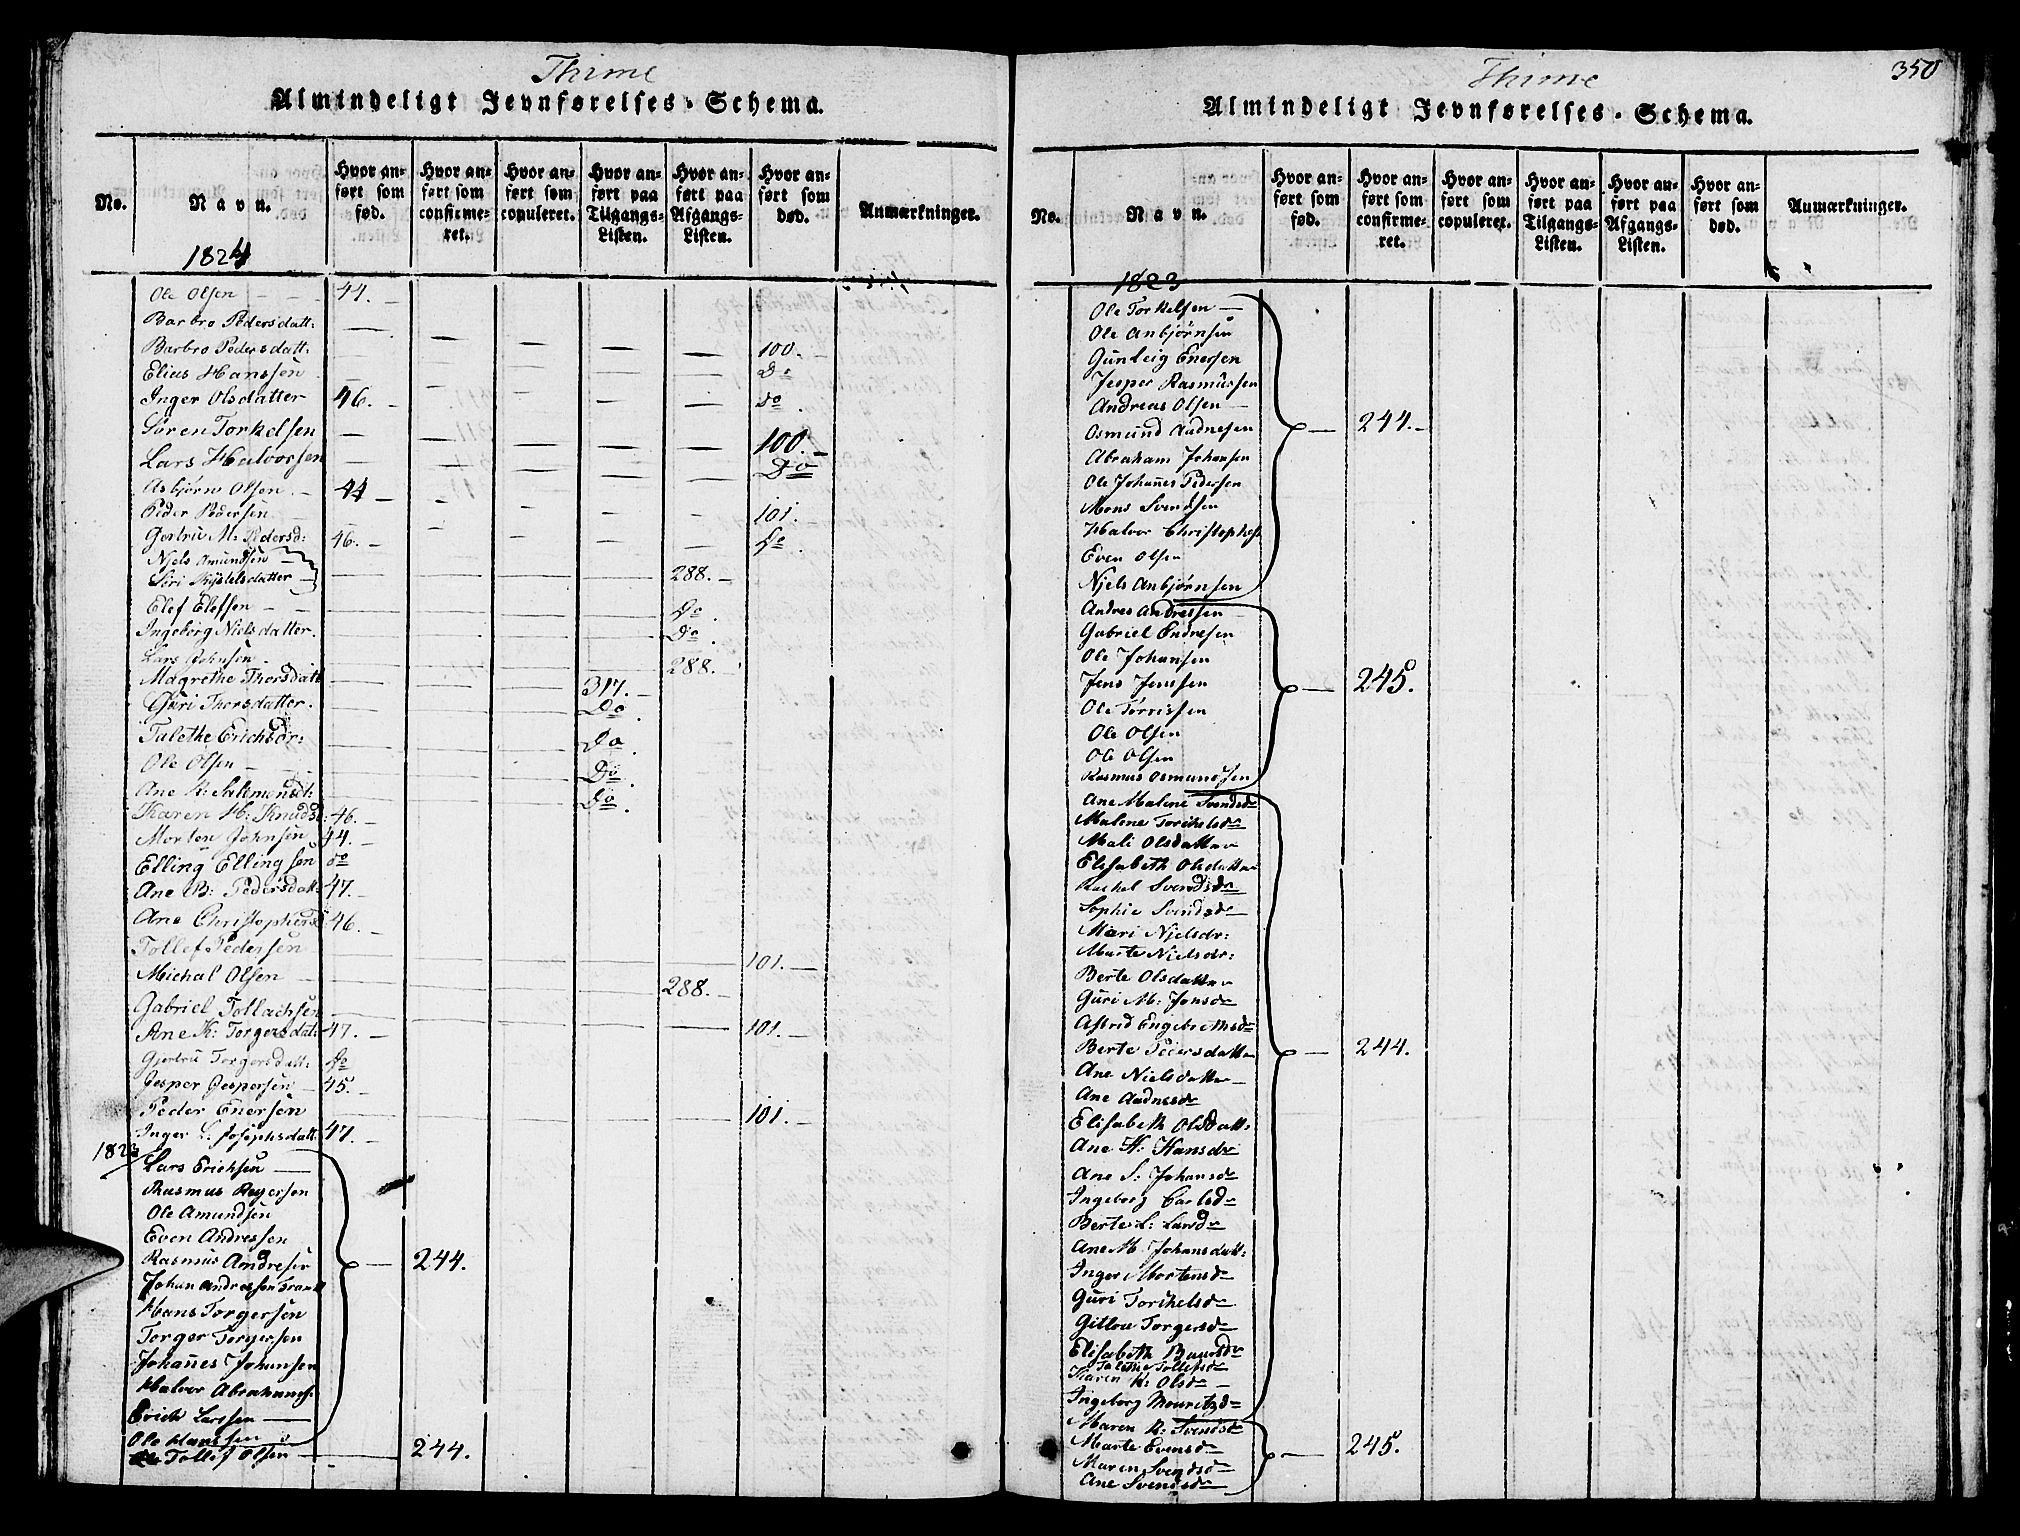 Thime
Almindeligt Jevnførelses-Schema.
No.
Navn.
Hvor anført som fød.
Hvor anført som confirmeret.
Hvor anført som copuleret.
Hvor anført paa Tilgangs-Listen.
Hvor anført paa Afgangs-Listen.
Hvor anført som død.
Anmærkninger.
1824
Ole Olsen 44.
Barbro Pedersdatt:
Barbro Pedersdatt: 100.
Elias Hanssen Do
Inger Olsdatter 46. do
Søren Torkelsen 100.
Lars Halvorsen Do
Asbjørn Olsen 44
Peder Pedersen 101.
Gjertru M: Pedersd: 46. Do
Njels Amundsen
Siri Kjstelsdatter 288.
Elef Elefsen Do
Ingeborg Nielsdatter. Do
Lars Johnsen 288.
Magrethe Thorsdatt 317.
Guri Thorsdatter. Do
Talethe Erichsdr: Do
Ole Olsen Do
Ane K: Salemonsdt: Do
Karen H: Knudsd: 46.
Morten Johnsen 44.
Elling Ellingsen do
Ane B: Pedersdatt: 47.
Ane Christophersd 46.
Tollef Pedersen 101.
Michal Olsen 288.
Gabriel Tollachsen
Ane K: Torgersdatt 47. 101.
Gjertru Torgersdatt: Do
Jesper Jespersen 45.
Peder Enersen 101.
Inger L: Josephsdatt: 47.
1823
Lars Erichsen
Rasmus Reyersen
Ole Amundsen
Even Andressen
Rasmus Andresen 244.
Johan Andressen
Hans Torgersen
Torger Torgersen
Johañes Johansen
Halvor Abrahams:
Erich Larssen
Ole Hanssen
Tollef Olsen 244.
350
Thime
Almindeligt Jevnførelses-Schema.
No.
Navn.
Hvor anført som fød.
Hvor anført som confirmeret.
Hvor anført som copuleret.
Hvor anført paa Tilgangs-Listen.
Hvor anført paa Afgangs-Listen.
Hvor anført som død.
Anmærkninger.
1823
Ole Torkelsen
Ole Anbjørnsen
Gunleig Enersen
Jesper Rasmussen
Andreas Olsen
Osmund Aadnesen 244.
Abraham Johansen
Ole Johañes Pedersen
Mons Svendsen
Halvor Christophers
Even Olsen
Njels Anbjørnsen
Andres Andressen
Gabriel Endresen
Ole Johansen
Jens Jenssen 245.
Ole Tørrissen
Ole Olsen
Ole Olsen
Rasmus Osmundsen
Ane Malene Svendsdr
Malene Torchelsdr
Mali Olsdatter
Elisabeth Olsdatter
Rachel Svendsdr
Sophie Svendsdr
Mari Njelsdr:
Marte Nielsdr:
Berte Olsdatter
Guri M: Jonsdr
Astrid Engebrethsdr
Berte Pedersdatter 244.
Ane Nielsdatter
Ane Aadnesdr
Elisabeth Olsdatt:
Ane H: Hansdr
Ane S: Johansdr
Ingeborg Carlsdr
Berte L: Larsdr
Ane M: Johansdatt:
Inger Mortensdr
Guri Torchelsdr
Gitlou Torgersdr
Elisabeth Baarsdr
Talethe Tollefsdr
Karen K: Olsdr
Ingeborg Mouritzdr
Maren K: Svendsdr
Marte Evensdr 245.
Maren Svendsdr
Ane Svendsdr